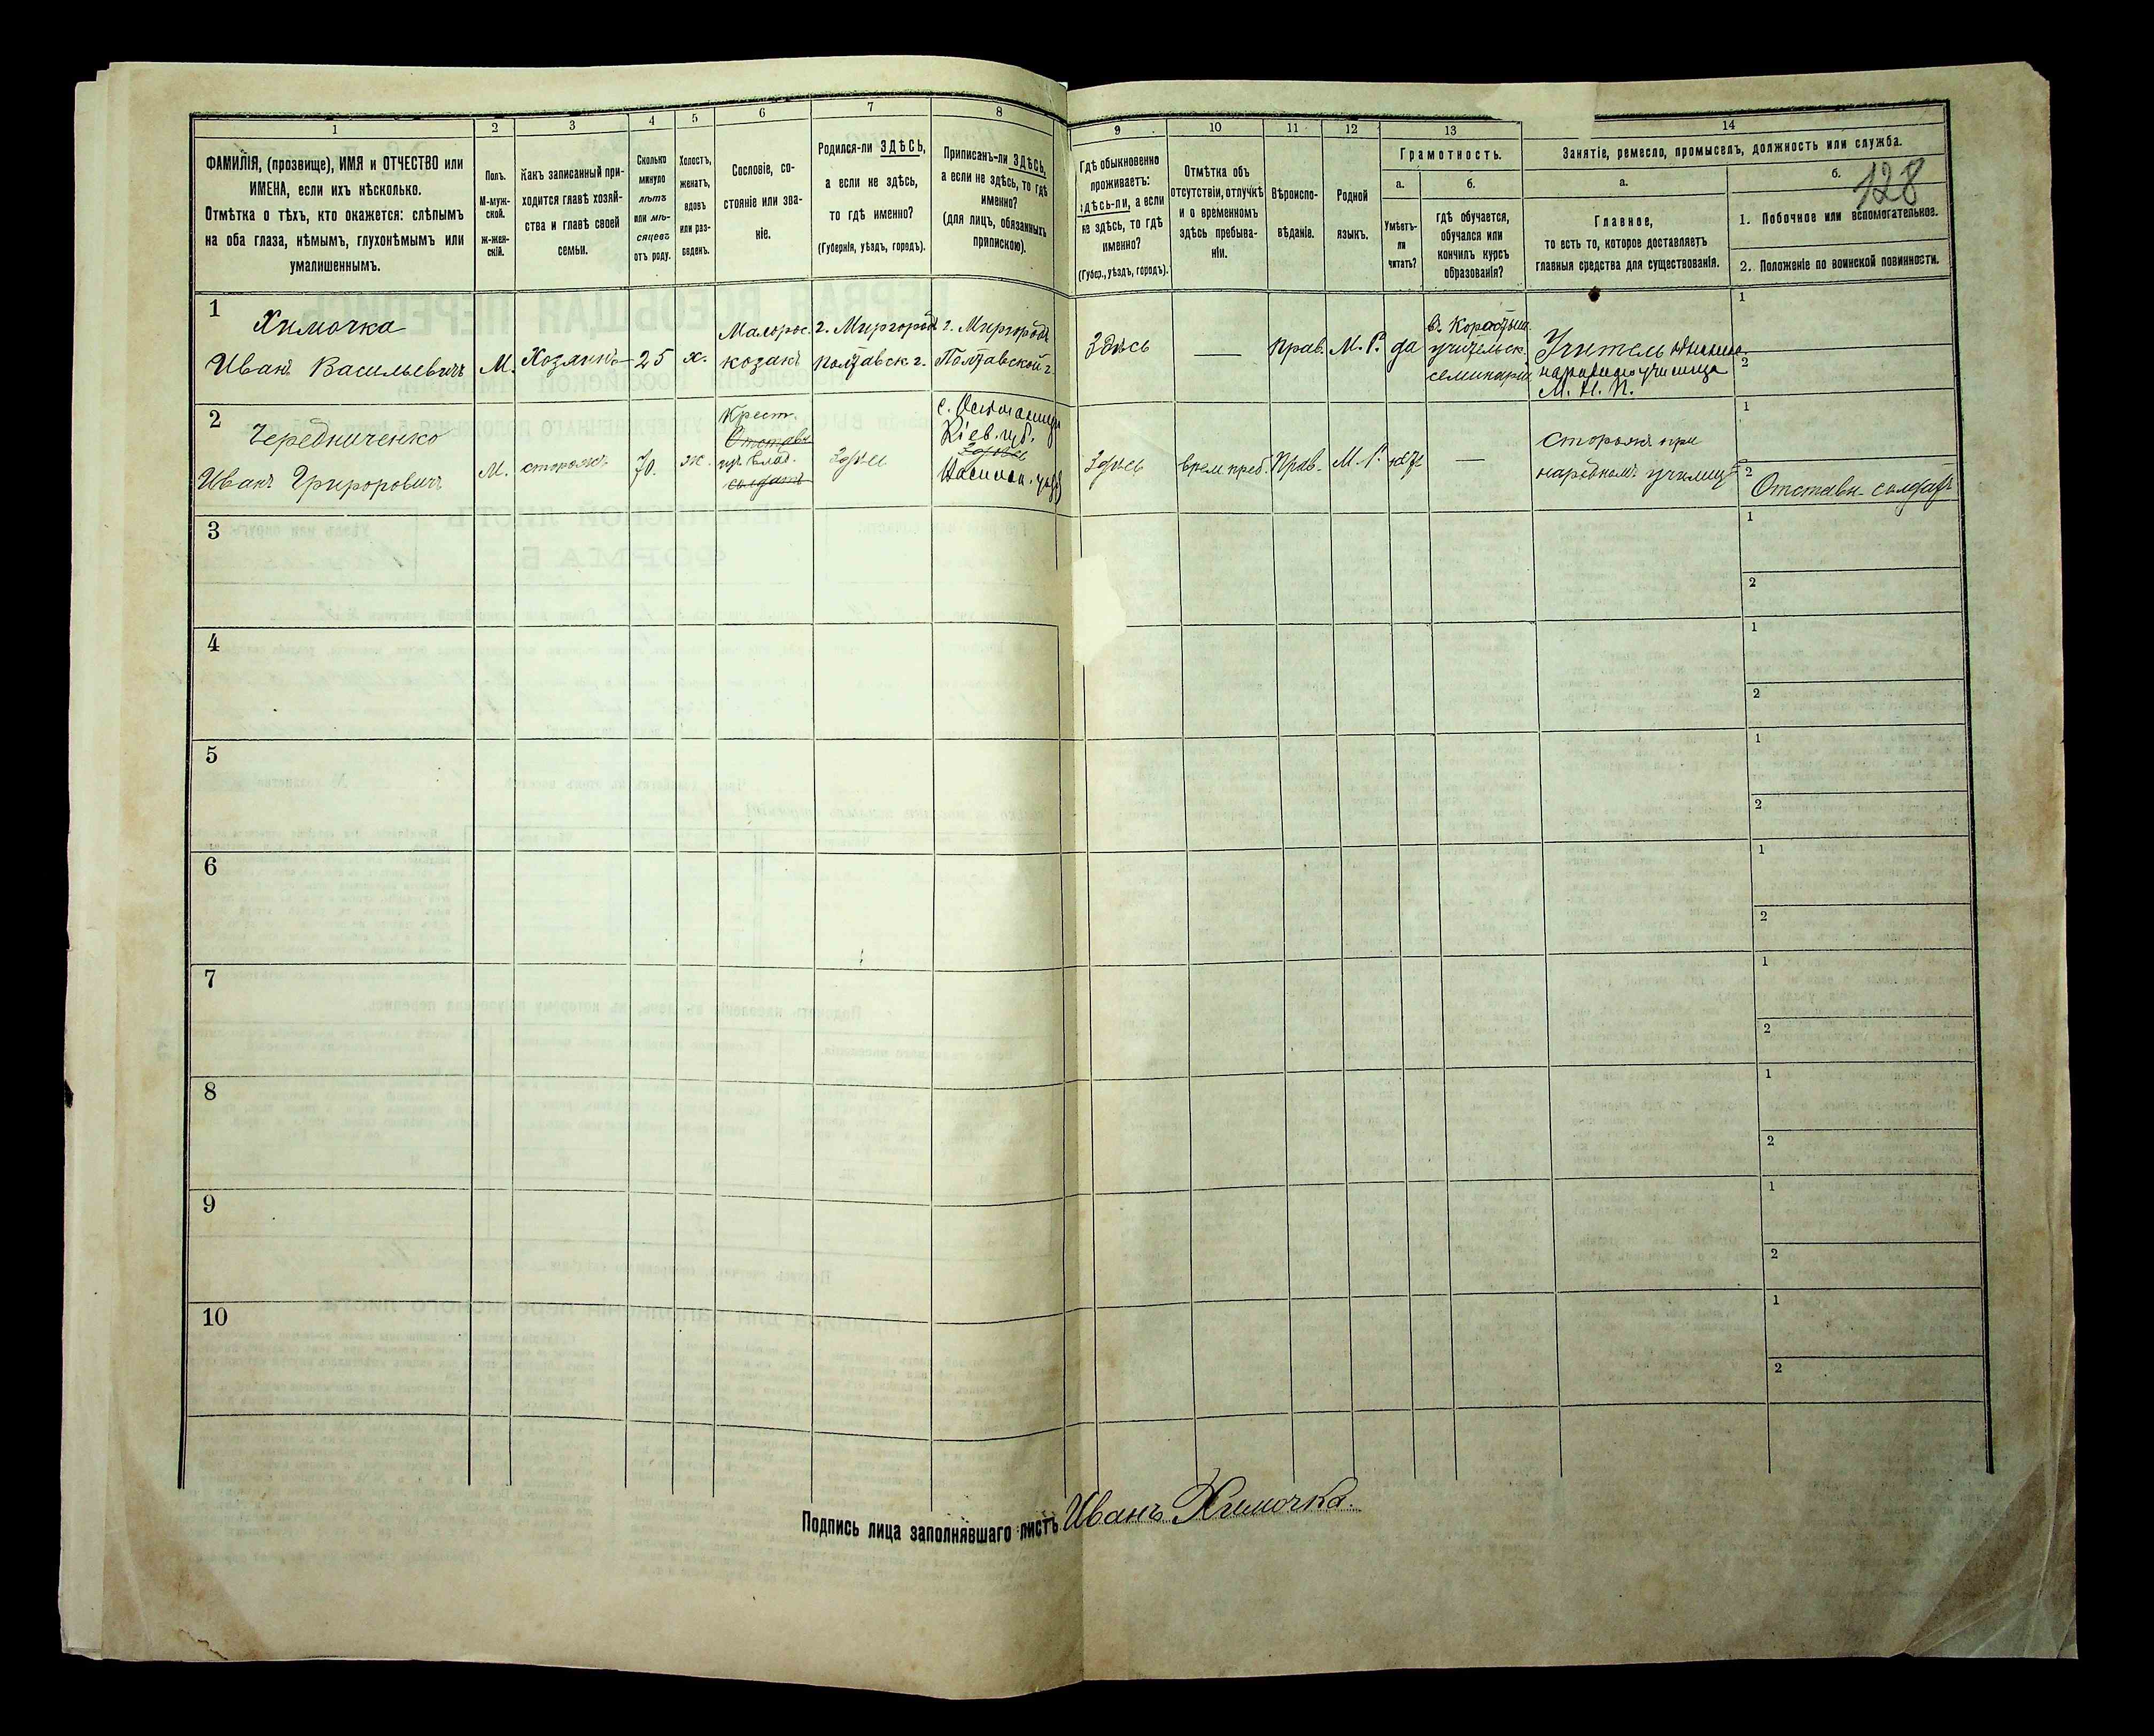 1
ФАМИЛІЯ, (прозвище), ИМЯ и ОТЧЕСТВО или
ИМЕНА, если ихъ нѣсколько.
Отмѣтка о тѣхъ, кто окажется: слѣпымъ
на оба глаза, нѣмымъ, глухонѣмымъ или
умалишеннымъ.
2
Полъ.
М-муж-
ской.
ж-жен-
скій.
3
Какъ записанный при-
ходится главѣ хозяй-
ства и главѣ своей
семьи.
4
Сколько
минуло
лѣтъ
или мѣ-
сяцевъ
отъ роду.
5
Холостъ,
женатъ,
вдовъ
или раз-
веденъ.
6
Сословіе, со-
стояніе или зва-
ніе.
7
Родился-ли ЗДѢСЬ,
а если не здѣсь,
то гдѣ именно?
(Губернія, уѣздъ, городъ).
8
Приписанъ-ли ЗДѢСЬ,
а если не здѣсь, то гдѣ
именно?
(для лицъ, обязанныхъ
припискою).
9
Гдѣ обыкновенно
проживаетъ:
здѣсь-ли, а если
не здѣсь, то гдѣ
именно?
(Губер., уѣздъ, городъ).
10
Отмѣтка объ
отсутствіи, отлучкѣ
и о временномъ
здѣсь пребыва-
ніи.
11
Вѣроиспо-
вѣданіе.
12
Родной
языкъ.
13
Грамотность.
а.
Умѣетъ-
ли
читать?
б.
гдѣ обучается,
обучался или
кончилъ курсъ
образованія?
14
Занятіе, ремесло, промыселъ, должность или служба.
а.
Главное,
то есть то, которое доставляетъ
главныя средства для существованія.
б.
128
1. Побочное или вспомогательное.
2. Положеніе по воинской повинности.
1
Химочка
Иванъ Васильевичъ
М.
Хозяинъ
25
х.
Малорос.
козакъ
г. Миргородъ
Полтавск г.
г. Миргородъ
Полтавской г.
Здѣсь
—
Прав.
М. Р.
да
въ Коростыш.
учительск.
семинаріи
Учитель
народнаго училища
М. Н. П.
1
2
2
Чередниченко
Иванъ Григоровичъ
М.
сторожъ
70.
ж.
Крест.
Отставн
изъ влад.
солдатъ
Здѣсь
Кіев. губ.
Здѣсь
Здѣсь
врем преб.
Прав.
М. Р.
нѣтъ
—
сторожъ при
народномъ училищѣ
1
2
Отставн. солдатъ
3
1
2
4
1
2
5
1
2
6
1
2
7
1
2
8
1
2
9
1
2
10
1
2
Подпись лица заполнявшаго листъ Иванъ Химочка.